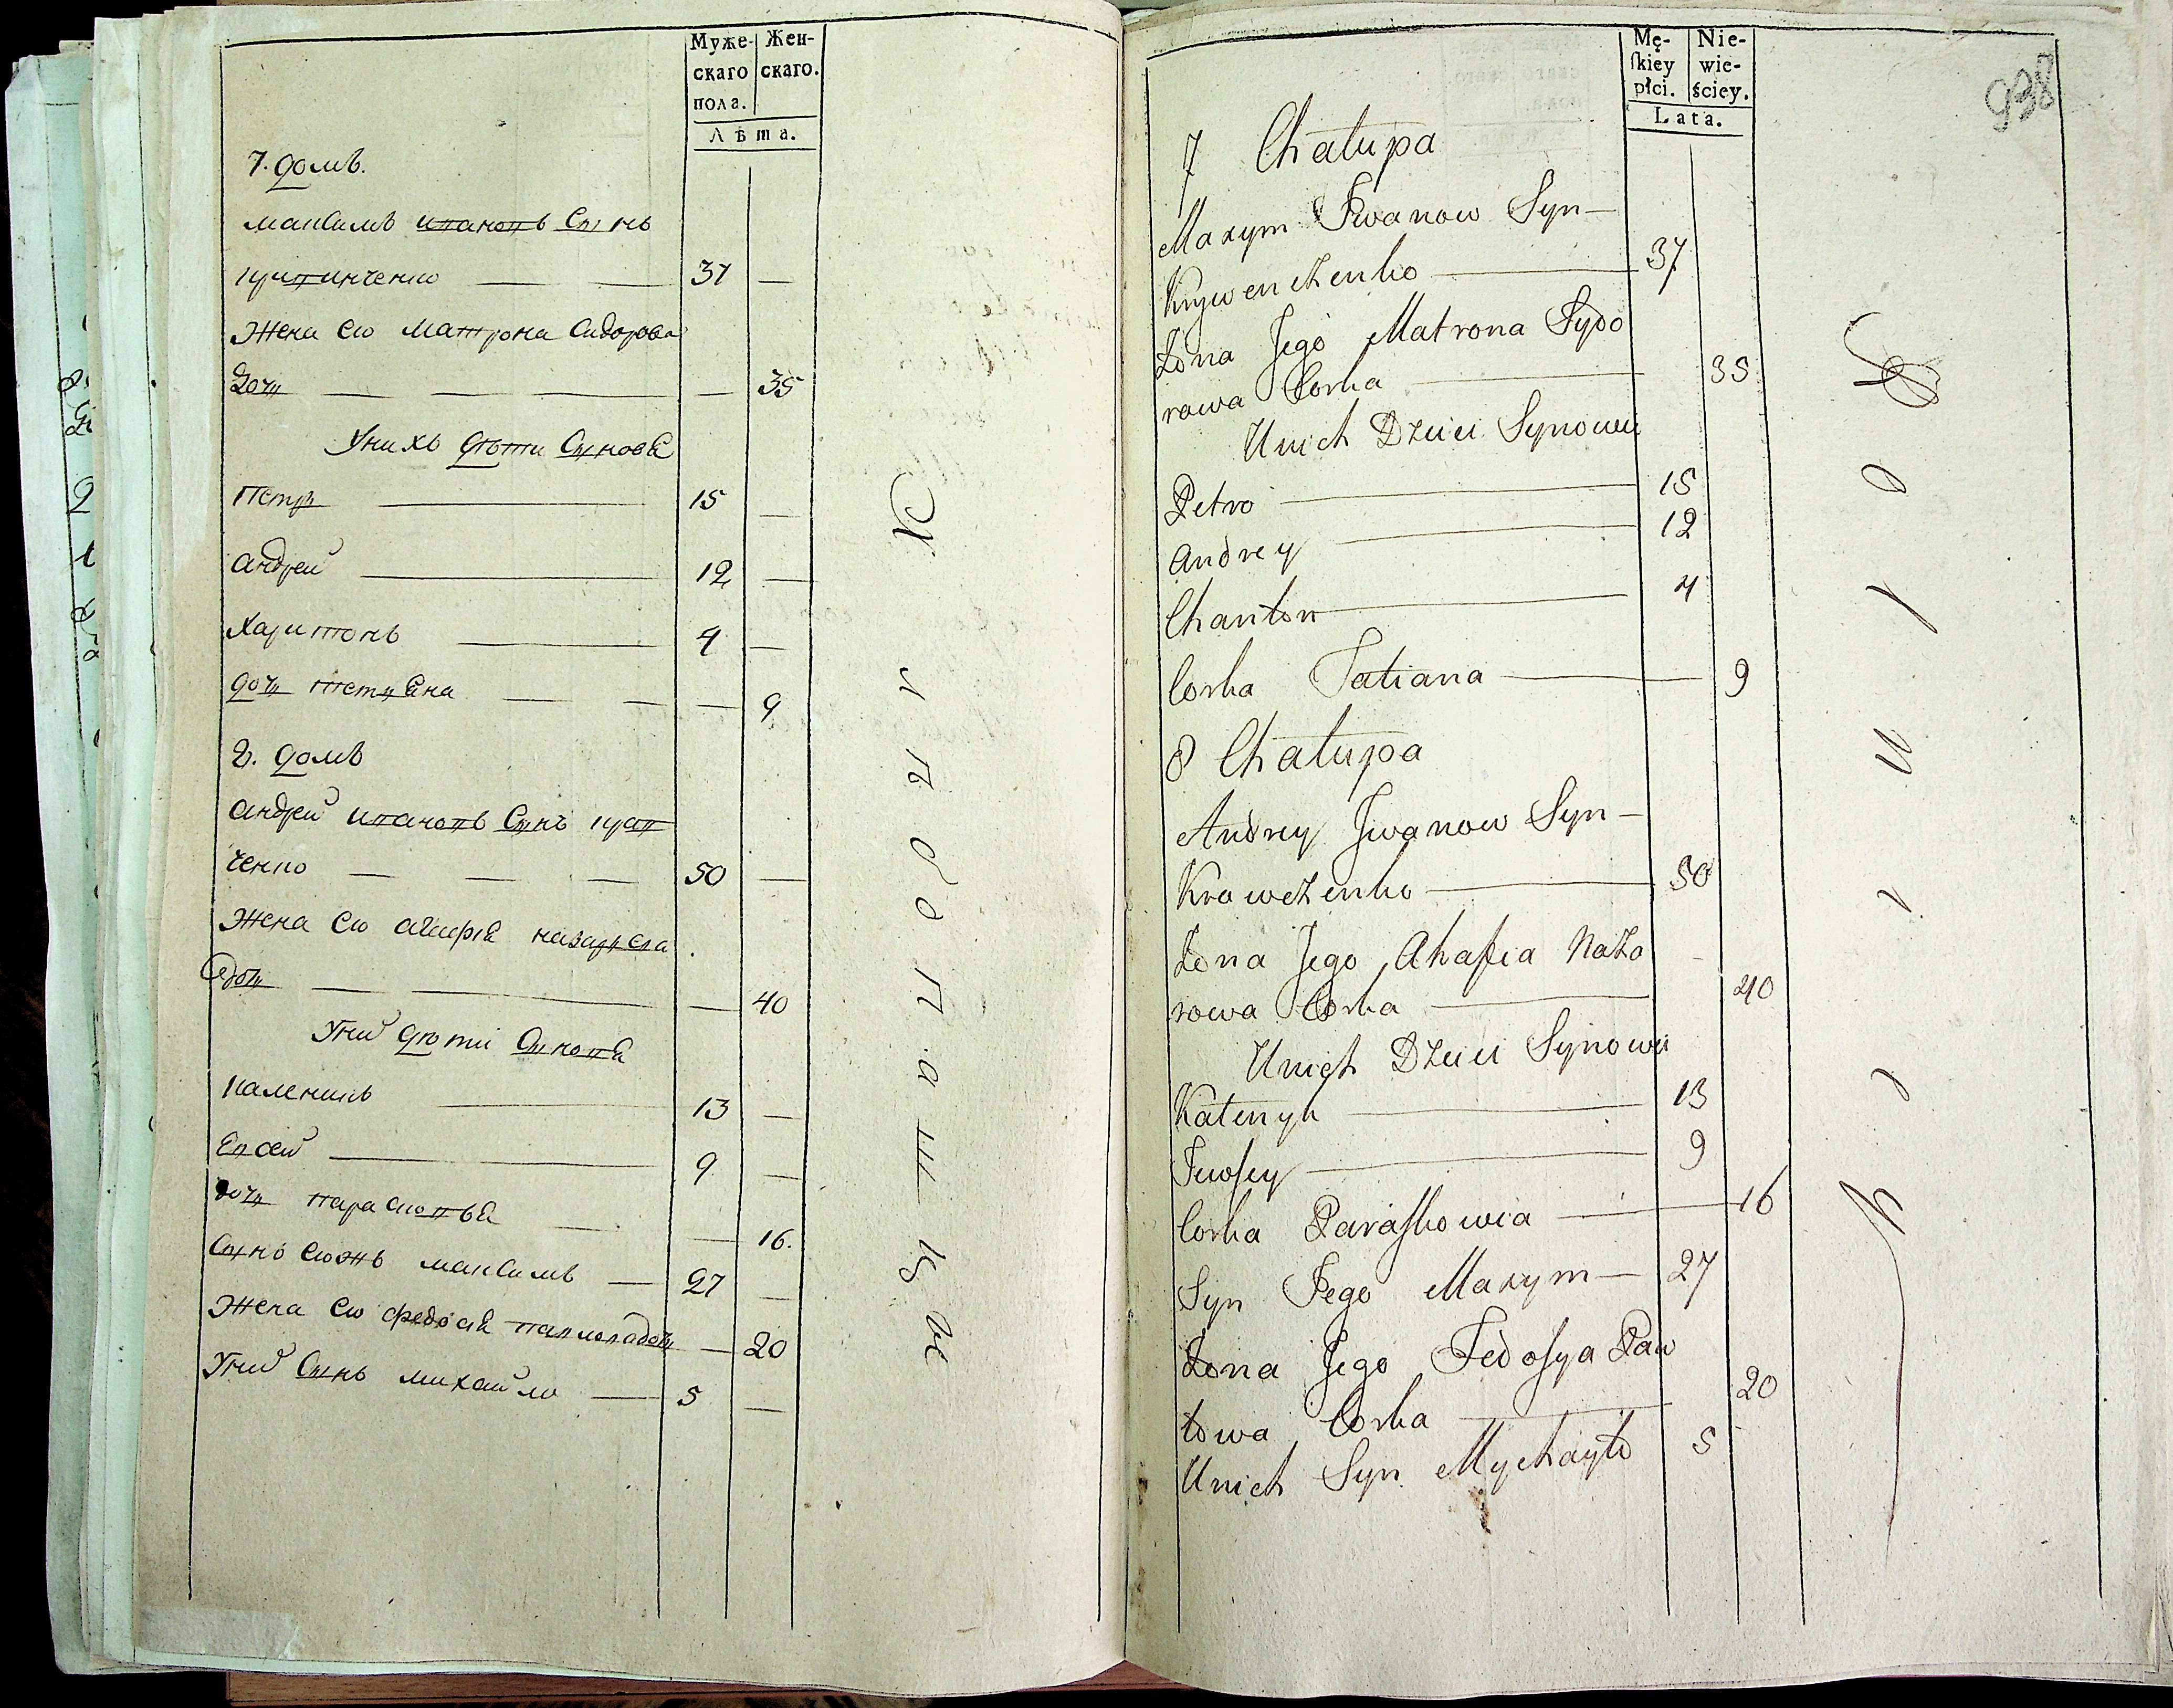 Муже-
скаго
пола.
Жен-
скаго.
Лѣта.
7. домъ.
максимъ ивановъ Сынъ
кривинченко — — 37 —
Жена ево матрона Сидорова
дочь — — — — 35
Унихъ дѣти Синовя
Петръ — 15 —
андрей — 12 —
Харитонъ — 4 —
дочь тетяна — — — 9
8. домъ
андрей ивановъ Сынъ крав
ченко — — — 50 —
Жена ево агафія назарова
дочь — — — 40
Уних дѣти Синовя
каленикъ — 13 —
Евсей — 9 —
дочь парасковья — — 16.
Сынъ евожъ максимъ — 27 —
Жена ево федосія павловадочь — 20
Уних Сынъ михайло — 5 —
Mę-
skiey
płci.
Nie-
wie-
ściey.
Lata.
938
7 Chałupa
Maxym Iwanow Syn —
Krywenczenko — 37
Żona Jego Matrona Sydo
rowa Corka — 35
Unich Dzieci Synowie
Petro — 15
Andrey — 12
Chariton — 4
Corka Tatiana — 9
8 Chałupa
Andrey Jwanow Syn —
Krawczenko — 50
Żona Jego Ahafia Naza
rowa Corka — 40
Unich Dzieci Synowie
Kalenyk — 13
Jewsey — 9
Corka Paraskowia — 16
Syn Jego Maxym — 27
Żona Jego Fedosya Paw
łowa Corka — 20
Unich Syn Mychayło 5